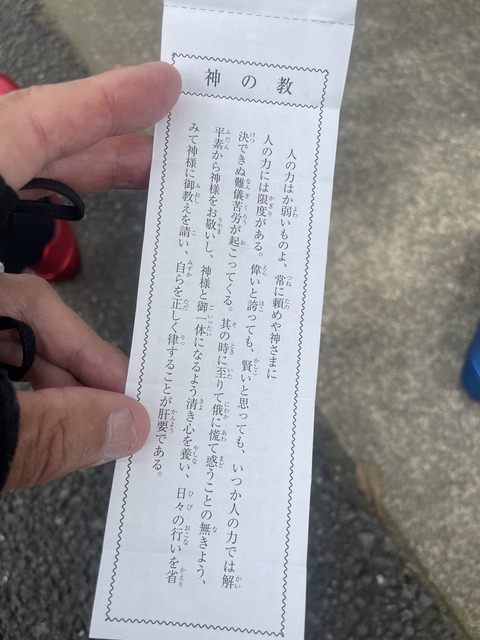 神の教
人の力はか弱いものよ、常に頼めや神さまに
人の力には限度がある。偉いと誇っても、賢いと思っても、いつか人の力では解
決できぬ難儀苦労が起こってくる。其の時に至りて俄に慌て惑うことの無きよう、
平素から神様をお敬いし、神様と御一体になるよう清き心を養い、日々の行いを省
みて神様に御教えを請い、自らを正しく律することが肝要である。